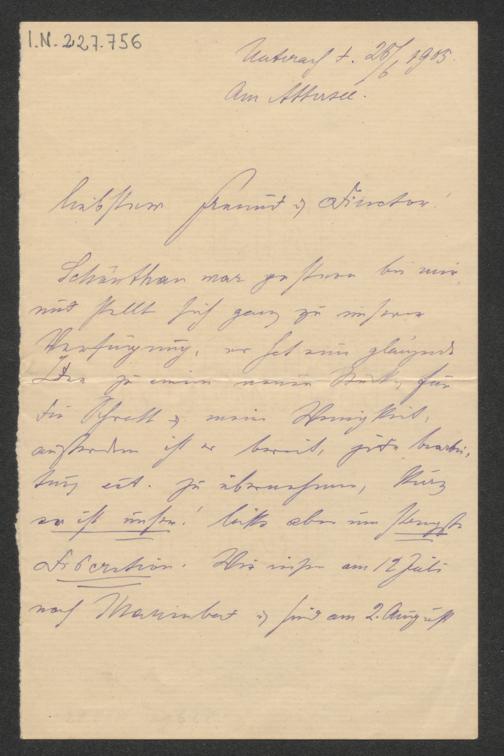 I.N. 227.756
Unterach d. 25/6 1903.
Am Attersee.
Liebster Freund & Director!
Schönthan war gestern bei mir
und stellt sich ganz zu unserer
Verfügung, er hat eine glänzende
Idee zu einem neuen Stück, für
die Schratt & meine Wenigkeit,
außerdem ist er bereit, jede Bearbei,
tung ect. zu übernehmen, kurz
er ist unser! bitte aber um strengste
Discretion. Wir reisen am 12 Juli
nach Marienbad & sind am 2. August